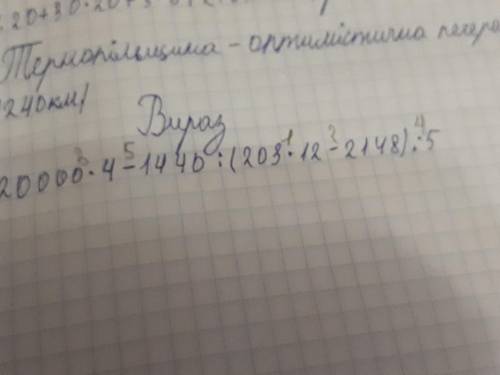 20+30·20+3
Тернопільщина - оптимістична
240км)
Вираз
20000·4-1440:(203·12-2148):5
3 5 1 2 4